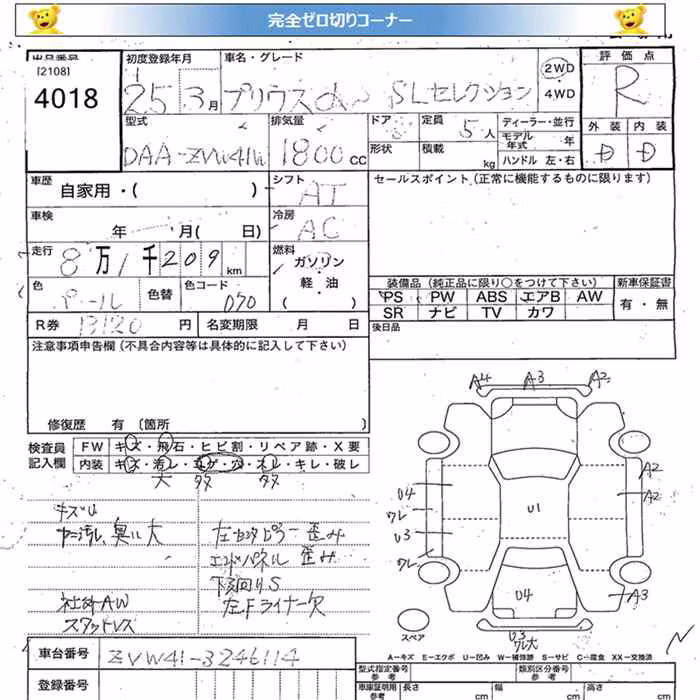 完全ゼロ切りコーナー
出品番号
[2108]
4018
初度登録年月
25 3月
車名・グレード
プリウスα SLセレクション
2WD
4WD
評価点
R
型式
DAA-ZVW41W
排気量
1800 CC
ドア
形状
定員 5人
積載 kg
ディーラー・並行
モデル年式 年
ハンドル 左・右
外装 内装
D D
車歴
自家用・( )
シフト
AT
セールスポイント(正常に機能するものに限ります)
車検
年 月( 日)
冷房
AC
走行
8万1千209km
燃料
ガソリン
軽・油
( )
色
パール
色替
色コード
070
装備品(純正品に限り○をつけて下さい)
新車保証書
PS PW ABS エアB AW
SR ナビ TV カワ
有・無
R券 13120 円
名変期限 月 日
後日品
注意事項申告欄(不具合内容等は具体的に記入して下さい)
修復歴 有〔箇所 〕
検査員
記入欄
FW キズ・飛石・ヒビ割・リペア跡・X要
内装 キズ・汚レ・コゲ・穴・スレ・キレ・破レ
大 多々 多々
キズU
ヤニ汚れ、臭い大
社外AW
スタットレス
左センタピラー歪み
エンドパネル歪み
下廻りS
左Fライナー欠
A4 A3 A2
A2
A2
U4
ワレ
U3
ワレ
U1
U4
A3
U3
ワレ大
スペア
A−キズ E−エクボ U−凹み W−補修跡 S−サビ C−腐食 XX−交換済
車台番号
ZVW41-3246114
登録番号
型式指定番号
参考
類別区分番号
参考
車庫証明用
参考
長さ cm
幅 cm
高さ cm